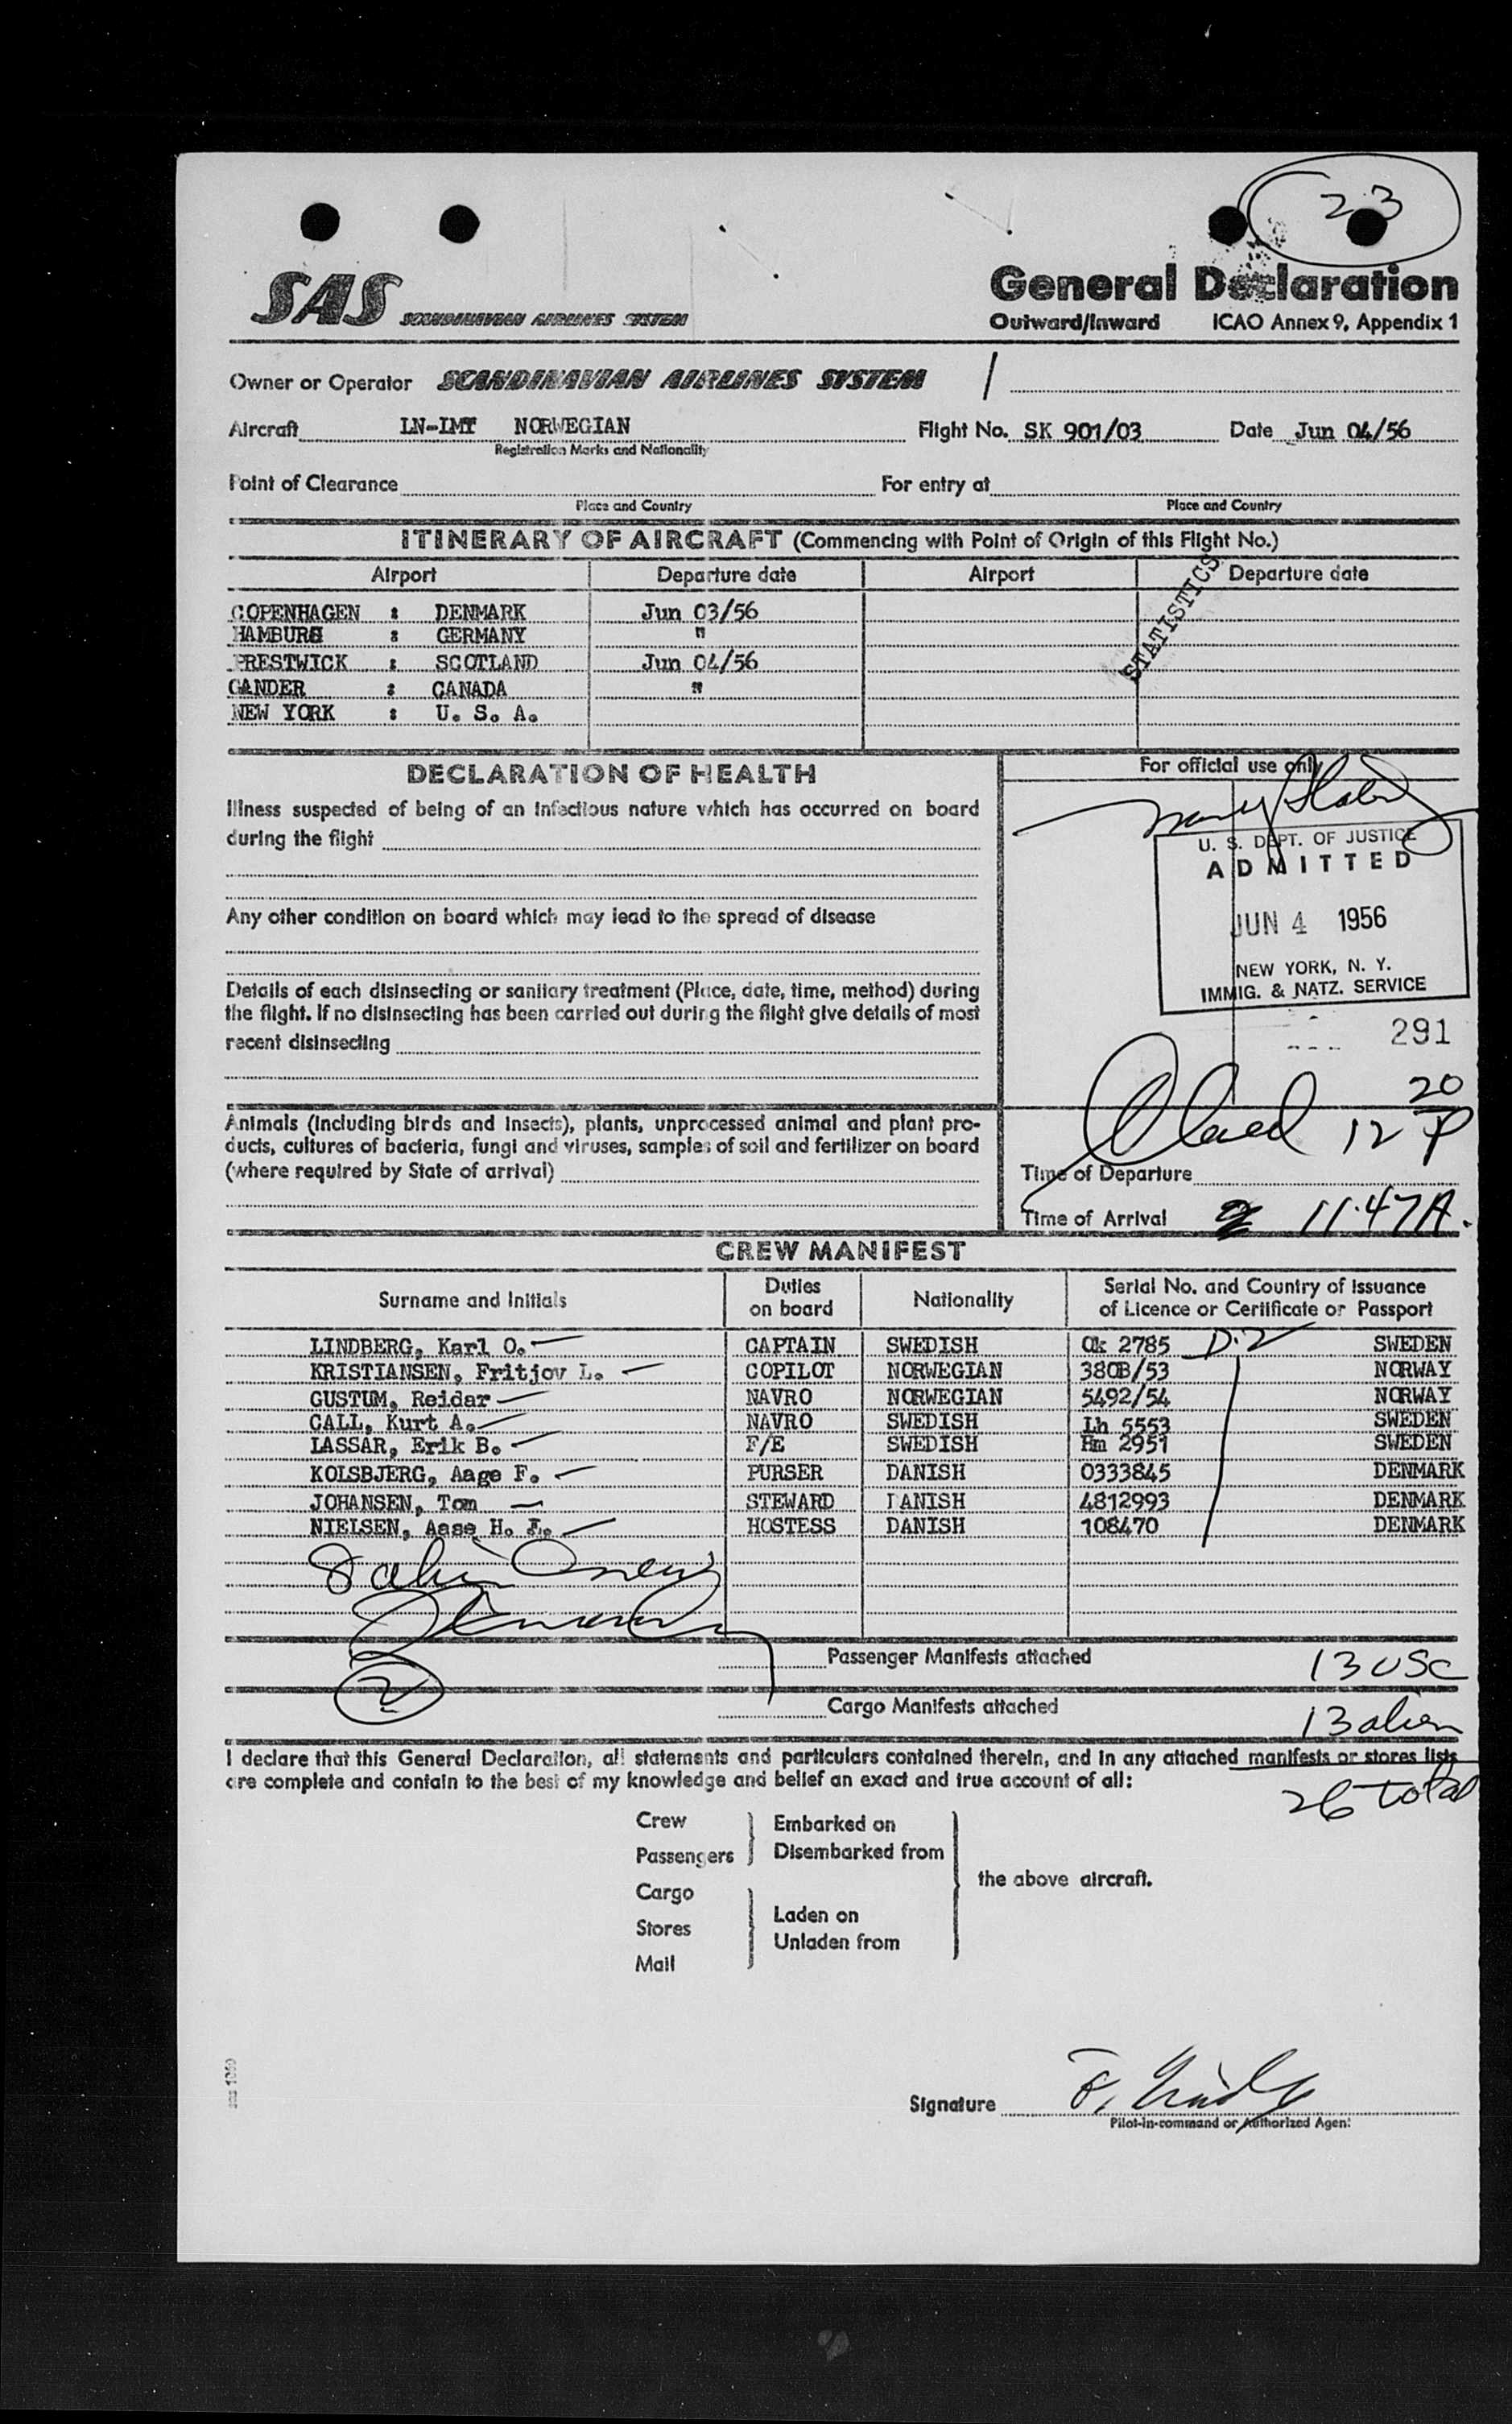 23
SAS SCANDINAVIAN AIRLINES SYSTEM
General Declaration
Outward/Inward ICAO Annex 9, Appendix 1
Owner or Operator SCANDINAVIAN AIRLINES SYSTEM
Aircraft LN-LMT NORWEGIAN Flight No. SK 901/03 Date Jun 04/56
Registration Marks and Nationality
Point of Clearance For entry at
Place and Country Place and Country
ITINERARY OF AIRCRAFT (Commencing with Point of Origin of this Flight No.)
Airport Departure date Airport Departure date
STATISTICS
COPENHAGEN : DENMARK Jun 03/56
HAMBURG : GERMANY "
PRESTWICK : SCOTLAND Jun 04/56
GANDER : CANADA "
NEW YORK : U. S. A.
DECLARATION OF HEALTH
Illness suspected of being of an infectious nature which has occurred on board
during the flight
Any other condition on board which may lead to the spread of disease
Details of each disinsecting or sanitary treatment (Place, date, time, method) during
the flight. If no disinsecting has been carried out during the flight give details of most
recent disinsecting
Animals (including birds and insects), plants, unprocessed animal and plant pro-
ducts, cultures of bacteria, fungi and viruses, samples of soil and fertilizer on board
(where required by State of arrival)
For official use only
U. S. DEPT. OF JUSTICE
ADMITTED
JUN 4 1956
NEW YORK, N. Y.
IMMIG. & NATZ. SERVICE
291
12 20 P
Time of Departure
Time of Arrival 11:47A.
CREW MANIFEST
Surname and Initials Duties on board Nationality Serial No. and Country of Issuance of Licence or Certificate or Passport
LINDBERG, Karl O. CAPTAIN SWEDISH Ok 2785 D-2 SWEDEN
KRISTIANSEN, Fritjov L. COPILOT NORWEGIAN 380B/53 NORWAY
GUSTUM, Reidar NAVRO NORWEGIAN 5492/54 NORWAY
CALL, Kurt A. NAVRO SWEDISH Lh 5553 SWEDEN
LASSAR, Erik B. F/E SWEDISH Hm 2951 SWEDEN
KOLSBJERG, Aage F. PURSER DANISH 0333845 DENMARK
JOHANSEN, Tom STEWARD DANISH 4812993 DENMARK
NIELSEN, Aase H. L. HOSTESS DANISH 108470 DENMARK
2
Passenger Manifests attached 13 USC
Cargo Manifests attached 13 alien
I declare that this General Declaration, all statements and particulars contained therein, and in any attached manifests or stores lists
are complete and contain to the best of my knowledge and belief an exact and true account of all:
26 total
Crew Embarked on
Passengers Disembarked from
the above aircraft.
Cargo
Stores Laden on
Unladen from
Mail
sas 1050
Signature
Pilot-in-command or Authorized Agent